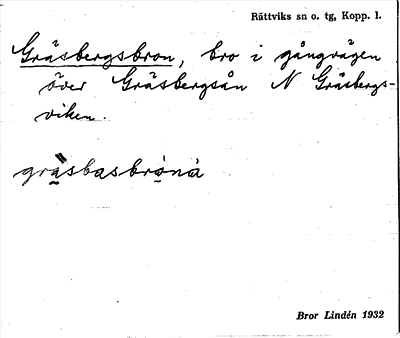 Rättviks sn o. tg, Kopp. l.
Gräsbergsbron, bro i gångvägen
över Gräsbergsån N Gräsbergs-
viken.
gräsbasbrònà
Bror Lindén 1932